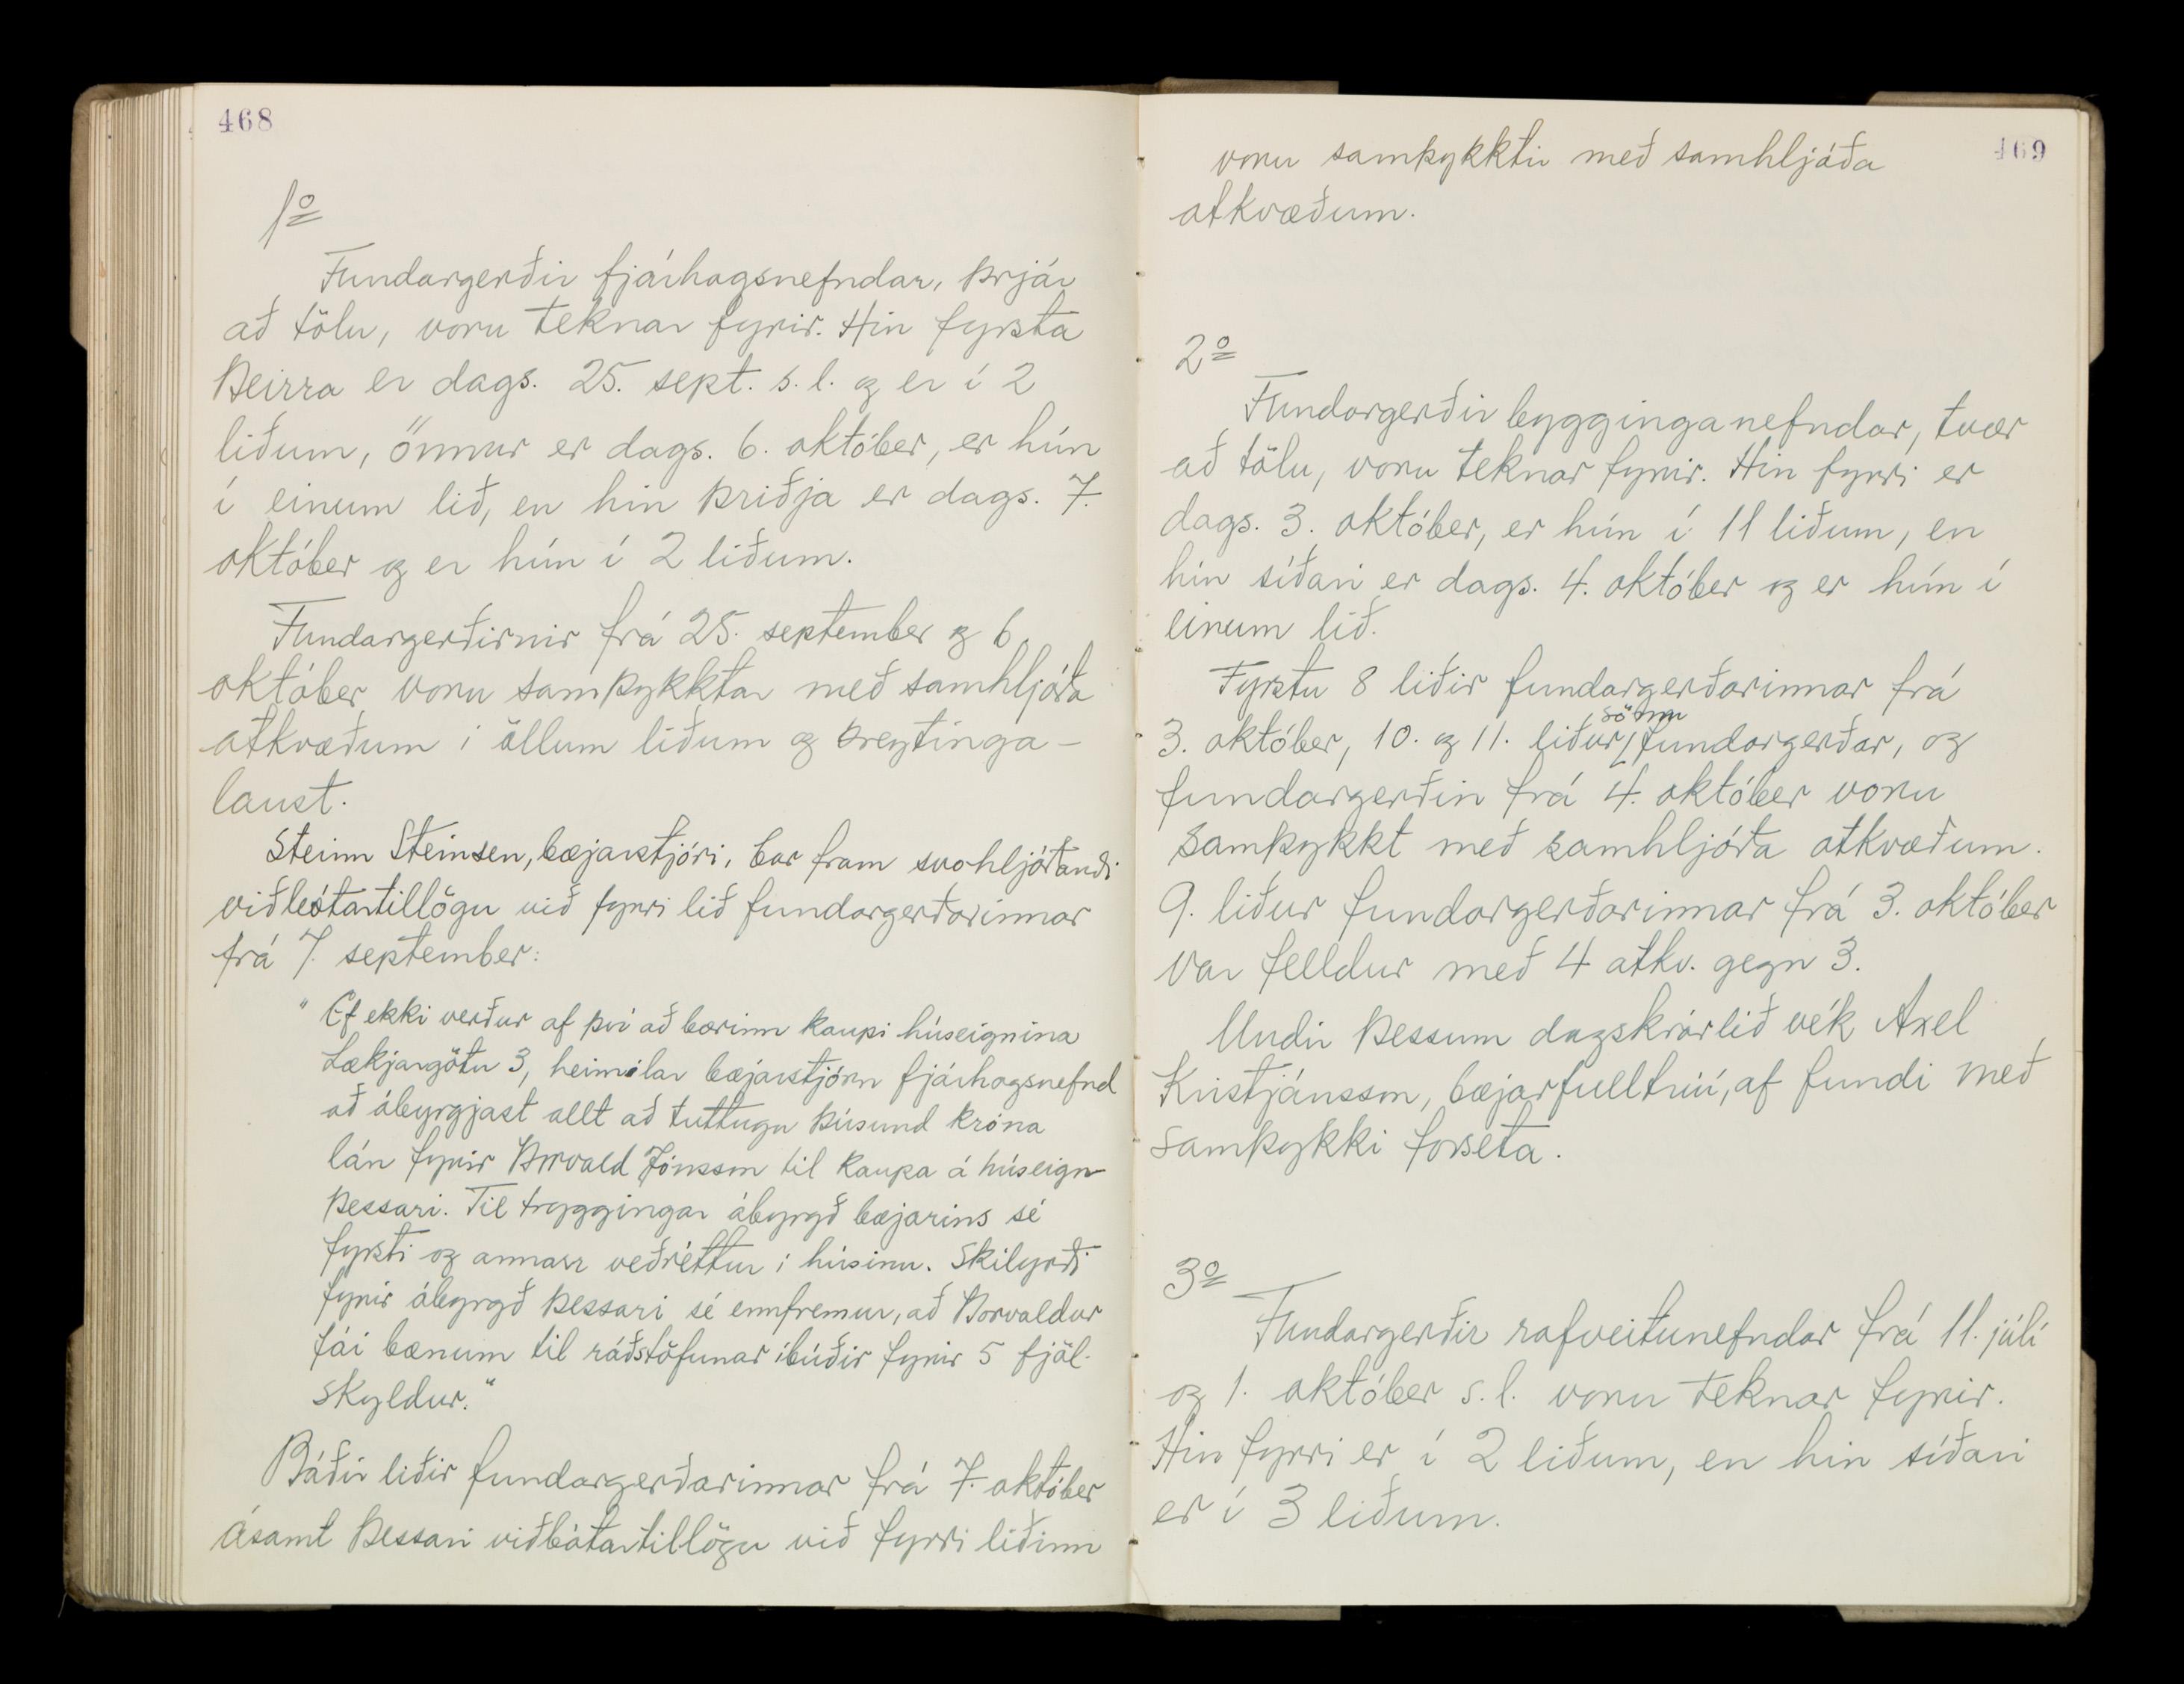 468
1º
Fundargerðir fjárhagsnefndar, þrjár
að tölu, voru teknar fyrir. Hin fyrsta
þeirra er dags. 25. sept. s.l. og er í 2
liðum, önnur er dags. 6. október, er hún
í einum lið, en hin þriðja er dags. 7.
október og er hún í 2 liðum.
Fundargerðirnir frá 25. september og 6.
október voru samþykktar með samhljóða
atkvæðum í öllum liðum og breytinga-
laust.
Steinn Steinsen, bæjarstjóri, bar fram svohljóðandi
viðbótartillögu við fyrri lið fundargerðarinnar
frá 7. september:
"Ef ekki verður af því að bærinn kaupi húseignina
Lækjargötu 3, heimilar bæjarstjórn fjárhagsnefnd
að ábyrgjast allt að tuttugu þúsund króna
lán fyrir Þorvald Jónsson til kaupa á húseign
þessari. Til tryggingar ábyrgð bæjarins sé
fyrsti og annarr veðréttur í húsinu. Skilyrði
fyrir ábyrgð þessari sé ennfremur, að Þorvaldur
fái bænum til ráðstöfunar íbúðir fyrir 5 fjöl-
skyldur."
Báðir liðir fundargerðarinnar frá 7. október
ásamt þessari viðbótartillögu við fyrri liðinn
469
voru samþykktir með samhljóða
atkvæðum.
2º
Fundargerðir bygginganefndar, tvær
að tölu, voru teknar fyrir. Hin fyrri er
dags. 3. október, er hún í 11 liðum, en
hin síðari er dags. 4. október og er hún í
einum lið.
Fyrstu 8 liðir fundargerðarinnar frá
3. október, 10. og 11. liður sömu fundargerðar, og
fundargerðin frá 4. október voru
samþykkt með samhljóða atkvæðum.
9. liður fundargerðarinnar frá 3. október
var felldur með 4 atkv. gegn 3.
Undir þessum dagskrárlið vék Axel
Kristjánsson, bæjarfulltrúi, af fundi með
samþykki forseta.
3º
Fundargerðir rafveitunefndar frá 11. júlí
og 1. október s.l. voru teknar fyrir.
Hin fyrri er í 2 liðum, en hin síðari
er í 3 liðum.